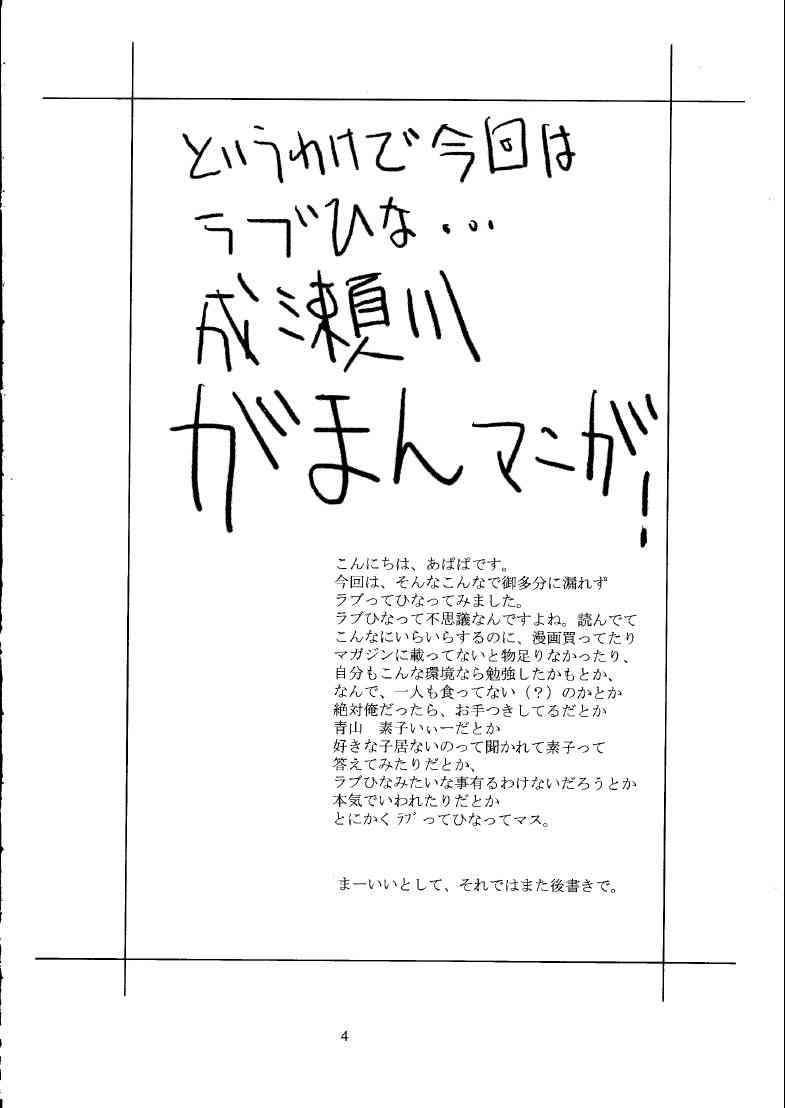 というわけで今回は
ラブひな...
成瀬川
がまんマンガ!
こんにちは、あぱぱです。
今回は、そんなこんなで御多分に漏れず
ラブってひなってみました。
ラブひなって不思議なんですよね。読んでて
こんなにいらいらするのに、漫画買ってたり
マガジンに載ってないと物足りなかったり、
自分もこんな環境なら勉強したかもとか、
なんで、一人も食ってない（？）のかとか
絶対俺だったら、お手つきしてるだとか
青山　素子いぃーだとか
好きな子居ないのって聞かれて素子って
答えてみたりだとか、
ラブひなみたいな事有るわけないだろうとか
本気でいわれたりだとか
とにかくﾗﾌﾞってひなってマス。
まーいいとして、それではまた後書きで。
4